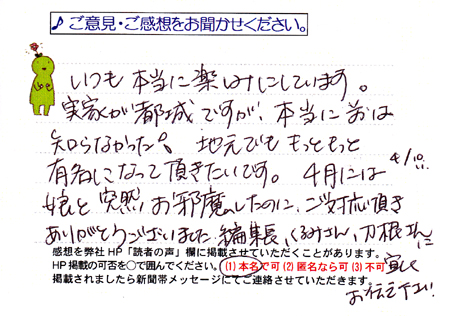 ♪ご意見・ご感想をお聞かせください。
いつも本当に楽しみにしています。
実家が都城ですが、本当に
知らなかった！地元でももっともっと
有名になって頂きたいです。4月には
4/10
娘と突然お邪魔したのに、ご対応頂き
ありがとうございました。編集長、くるみさん、刀根さんに
感想を弊社HP「読者の声」欄に掲載させていただくことがあります。
HP掲載の可否を○で囲んでください。(1)本名で可(2)匿名なら可(3)不可
宜しく
掲載されましたら新聞帯メッセージにてご連絡させていただきます。
お伝え下さい!